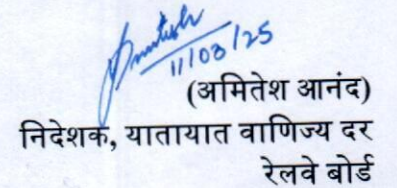 11/08/25
(अमितेश आनंद)
निदेशक, यातायात वाणिज्य दर
रेलवे बोर्ड